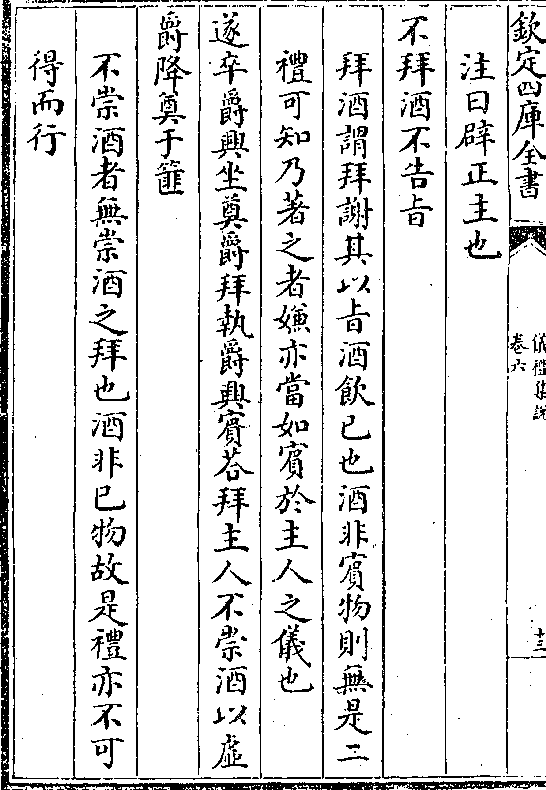 欽定四庫全書
儀禮集說
卷六
十三
注曰辟正主也
不拜酒不告㫖
拜酒謂拜謝其以㫖酒飲已也酒非賓物則無是二
禮可知乃著之者嫌亦當如賓於主人之儀也
遂卒爵興坐奠爵拜執爵興賓荅拜主人不崇酒以虛
爵降奠于篚
不崇酒者無崇酒之拜也酒非已物故是禮亦不可
得而行